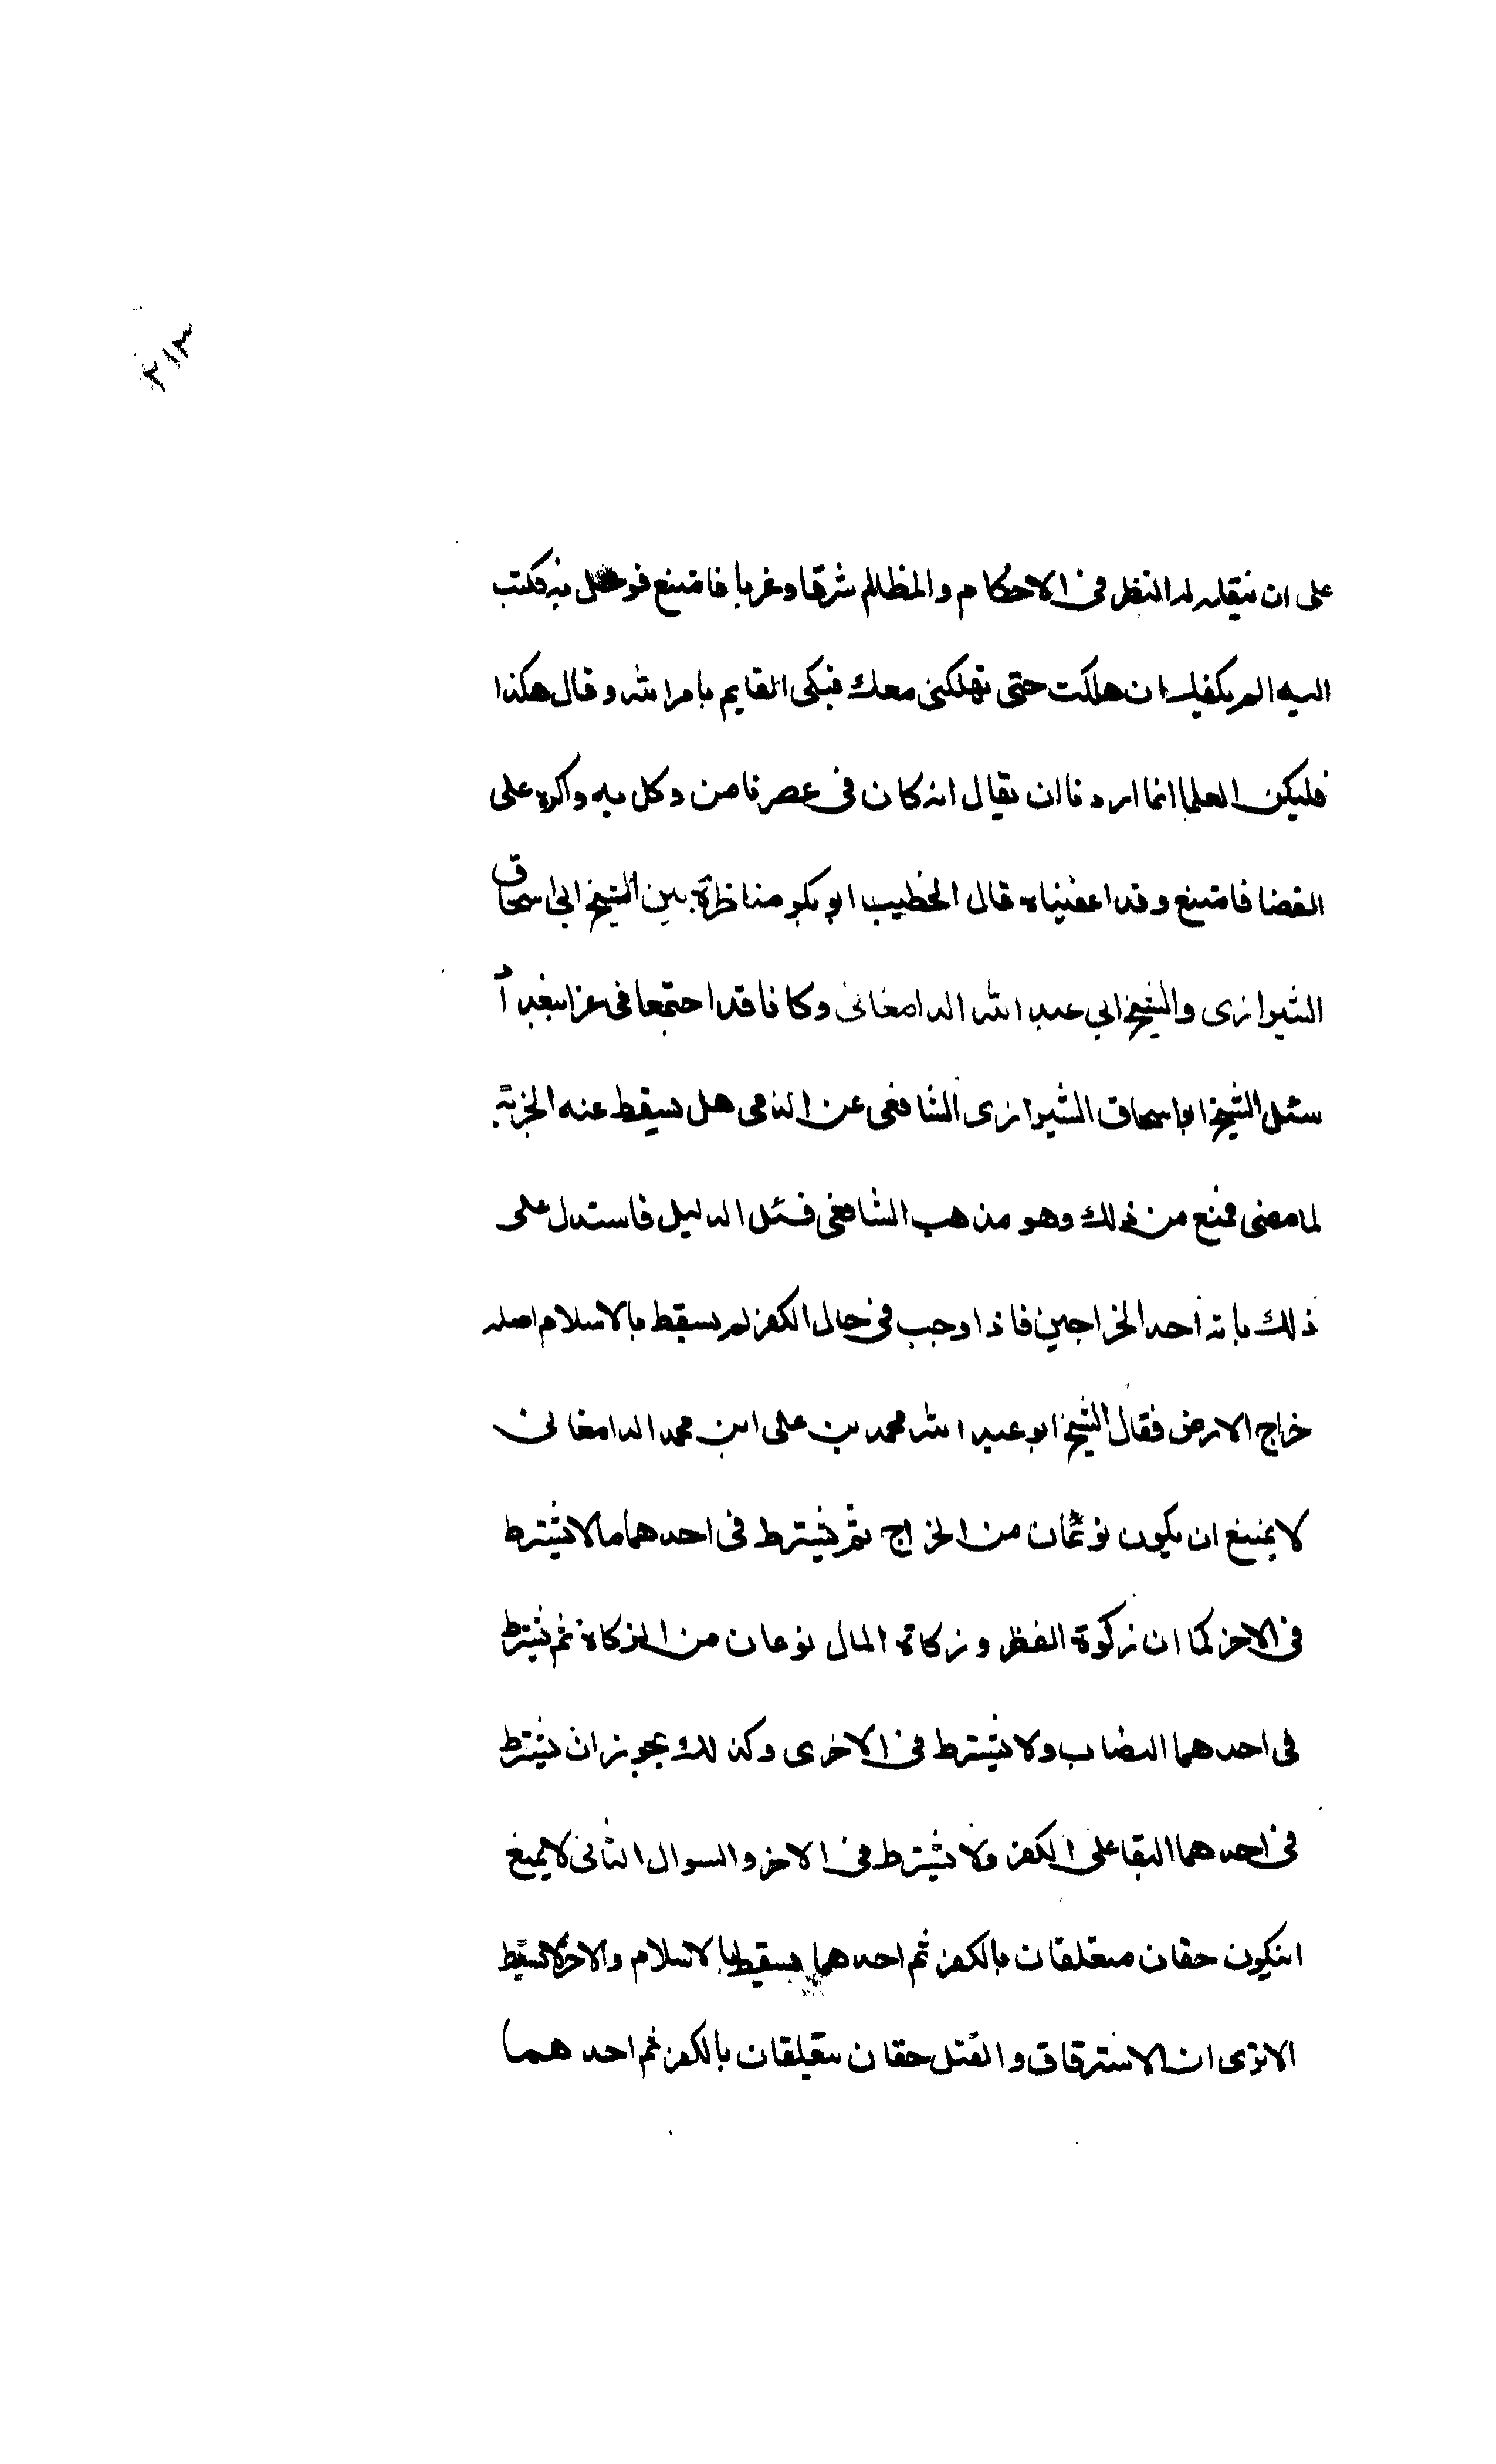 ٢١٣
على ان يتقلد له النظر في الاحكام والمظالم شرقا وغربا فامتنع فوكل به فكتب
اليه الم يكفيك ان هلكت حتى تهلكني معك فبكى القايم بامر الله وقال هكذا
فليكن العلما انما اردنا ان يقال انه كان في عصرنا من وكل به واكره على
القضا فامتنع وقد اعفيناه قال الخطيب ابو بكر مناظرة بين الشيخ ابي اسحاق
الشيرازي والشيخ ابي عبد الله الدامغاني وكانا قد اجتمعا في عزا ببغداد
سئل الشيخ ابو اسحاق الشيرازي الشافعي عن الذمي هل يسقط عنه الجزية
لما مضى فمنع من ذلك وهو مذهب الشافعي فسئل الدليل فاستدل على
ذلك بانه احد الخراجين فاذا وجب في حال الكفر لم يسقط بالاسلام اصله
خراج الارض فقال الشيخ ابو عبد الله محمد بن على ابن محمد الدامغاني
لا يمتنع ان يكون نوعان من الخراج ثم يشترط في احدهما ما لا يشترط
في الاخر كما ان زكوة الفطر وزكاة المال نوعان من الزكاة ثم يشترط
في احدهما النصاب ولا يشترط في الاخرى وكذلك يجوز ان يشترط
في احدهما البقا على الكفر ولا يشترط في الاخر والسوال الثاني لا يمتنع
انيكون حقان متعلقان بالكفر ثم احدهما يسقط بالاسلام والاخر لا يسقط
الا ترى ان الاسترقاق والقتل حقان متعلقان بالكفر ثم احدهما